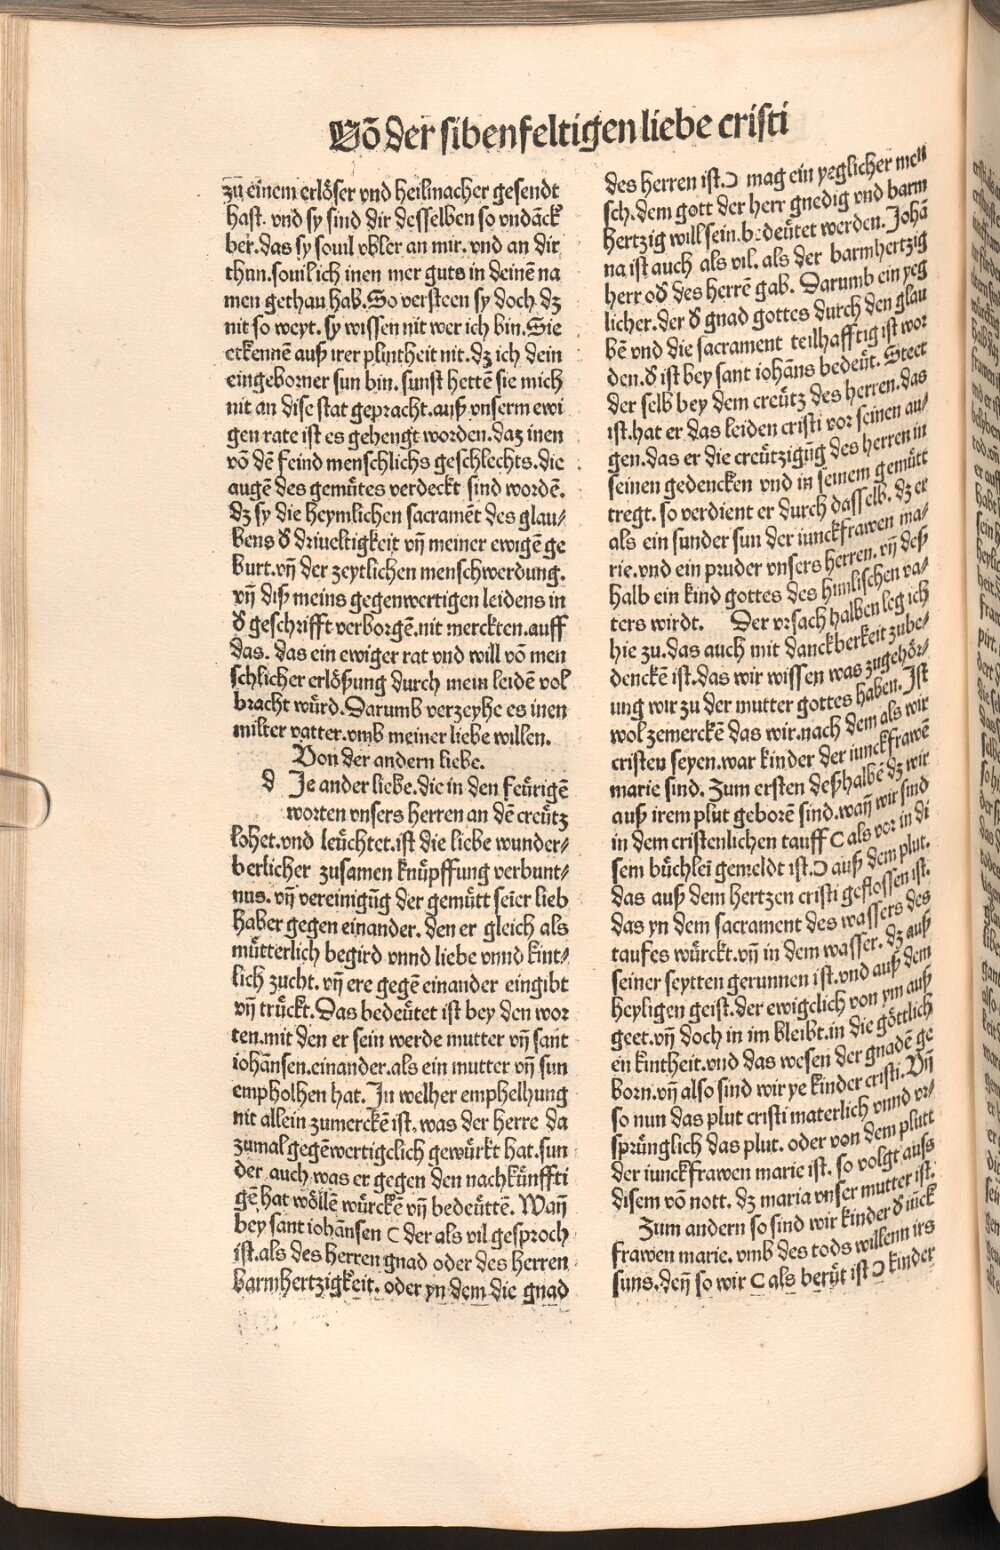 Võ der sibenfeltigen liebe cristi
zu einem erlöser vnd heilmacher gesendt
hast. vnd sy sind dir desselben so vndãck
ber.das sy souil vbler an mir. vnd an dir
thun.souil ich inen mer guts in deinẽ na
men gethau hab.So versteen sy doch.dz
nit so weyt. sy wissen nit wer ich bin.Sie
erkennẽ auß irer plintheit nit.dz ich dein
eingeborner sun bin.sunst hettẽ sie mich
nit an dise stat gepracht.auß vnserm ewi
gen rate ist es gehengt worden.daz inen
võ dẽ feind menschlichs geschlechts.die
augẽ des gemütes verdeckt sind wordẽ.
dz sy die heymlichen sacramẽt des glau⸗
bens d̕ driueltigkeit vñ meiner ewigẽ ge
burt.vñ der zeytlichen menschwerdung.
vñ diß meins gegenwertigen leidens in
d̕ geschrifft verborgẽ.nit merckten.auff
das. das ein ewiger rat vnd will võ men
schlicher erlößung durch mein leidẽ vol
bracht würd.Darumb verzeyhe es inen
milter vatter.vmb meiner liebe willen.
Von der andern liebe.
d Je ander liebe.die in den feürigẽ
worten vnsers herren an dẽ creütz
lohet.vnd leüchtet.ist die liebe wunder⸗
berlicher zusamen knüpffung verbunt⸗
nus. vñ vereinigũg der gemütt seier lieb
haber gegen einander. den er gleich als
mütterlich begird vnnd liebe vnnd kint⸗
lich zucht. vñ ere gegẽ einander eingibt
vñ trückt.Das bedeütet ist bey den wor
ten.mit den er sein werde mutter vñ sant
iohãnsen.einander.als ein mutter vñ sun
empholhen hat.In welher emphelhung
nit allein zumerckẽ ist, was der herre da
zumal gegẽwertigclich gewürkt hat.sun
der auch was er gegen den nachkünffti
gẽ hat wöllẽ würckẽ vñ bedeüttẽ. Wañ
bey sant iohãnsen C der als vil gesproch
ist.als des herren gnad oder des herren
barmhertzigkeit. oder yn dem die gnad
des herren ist.Ɔ mag ein yeglicher men
sch.dem gott der herr gnedig vnd barm
hertzig will sein.bedeütet werden.Johã
na ist auch als vil. als der barmhertzig
herr od̕ des herrẽ gab. Darumb ein yeg
licher.der d̕ gnad gottes durch den glau
bẽ vnd die sacrament teilhafftig ist wor
den.d̕ ist bey sant iohãns bedeüt. Steet
der selb bey dem creütz des herren.das
ist.hat er das leiden cristi vor seinen au⸗
gen.das er die creützigũg des herren in
seinen gedencken vnd in seinem gemütt
tregt. so verdient er durch dasselb. dz er
als ein sunder sun der iunckfrawen ma⸗
rie.vnd ein pruder vnsers herren. vñ deß
halb ein kind gottes des himlischen va⸗
ters wirdt. Der vrsach halben leg ich
hie zu.das auch mit danckberkeit zube⸗
denckẽ ist.das wir wissen was zugehör⸗
ung wir zu der mutter gottes haben. Ist
wol zemerckẽ das wir.nach dem als wir
cristen seyen.war kinder der iunckfrawẽ
marie sind. Zum ersten deßhalbẽ dz wir
auß irem plut geborẽ sind.wañ wir sind
in dem cristenlichen tauff C als vor in di
sem büchlei gemeldt ist.Ɔ auß dem plut.
das auß dem hertzen cristi geflossen ist.
das yn dem sacrament des wassers des
taufes würckt.vñ in dem wasser. dz auß
seiner seytten gerunnen ist.vnd auß dem
heyligen geist.der ewigclich von ym auß
geet.vñ doch in im bleibt.in die göttlich
en kintheit.vnd das wesen der gnadẽ ge
born.vñ also sind wir ye kinder cristi.Vñ
so nun das plut cristi materlich vnnd vr⸗
sprünglich das plut. oder von dem plutt
der iunckfrawen marie ist. so volgt auss
disem võ nott. dz maria vnser mutter ist.
Zum andern so sind wir kinder d̕ iũck
frawen marie. vmb des tods willenn irs
suns.deñ so wir C als berüt ist Ɔ kinder